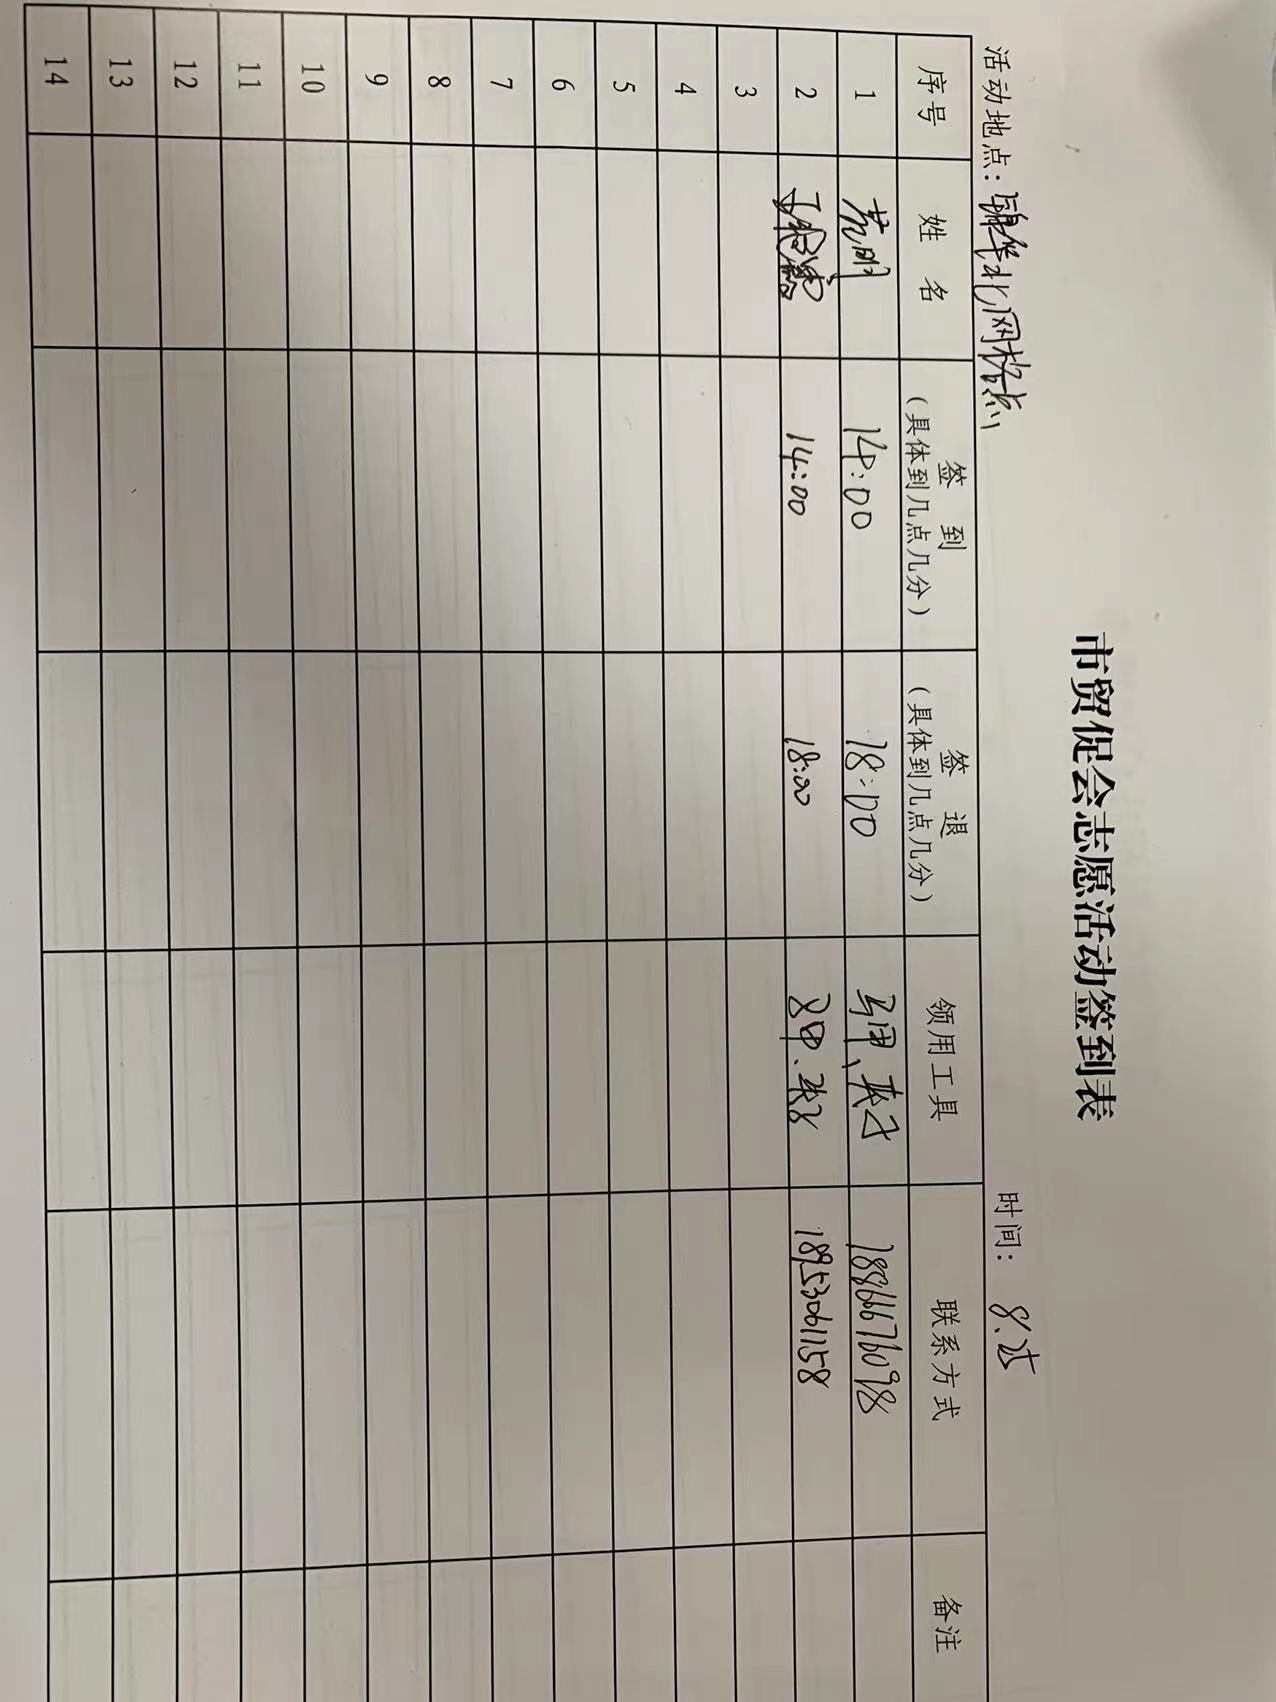 市贸促会志愿活动签到表
活动地点：锦华北网格点 时间：8.25
序号 姓名 签到（具体到几点几分） 签退（具体到几点几分） 领用工具 联系方式 备注
1 14:00 18:00 马甲、夹子 18866676098
2 14:00 18:00 马甲、夹子 18953061158
3
4
5
6
7
8
9
10
11
12
13
14